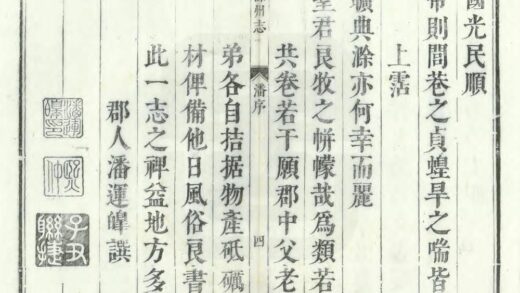 國光民順
帝則閭巷之貞蝗旱之喘皆
上霑
曠典滁亦何幸而麗
聖君良牧之帡幪哉爲類若
滁州志
潘序
四
共卷若干願郡中父老
弟各自拮据物產砥礪
材俾備他日風俗良書
此一志之裨益地方多
郡人潘運皥譔
子丑聯捷